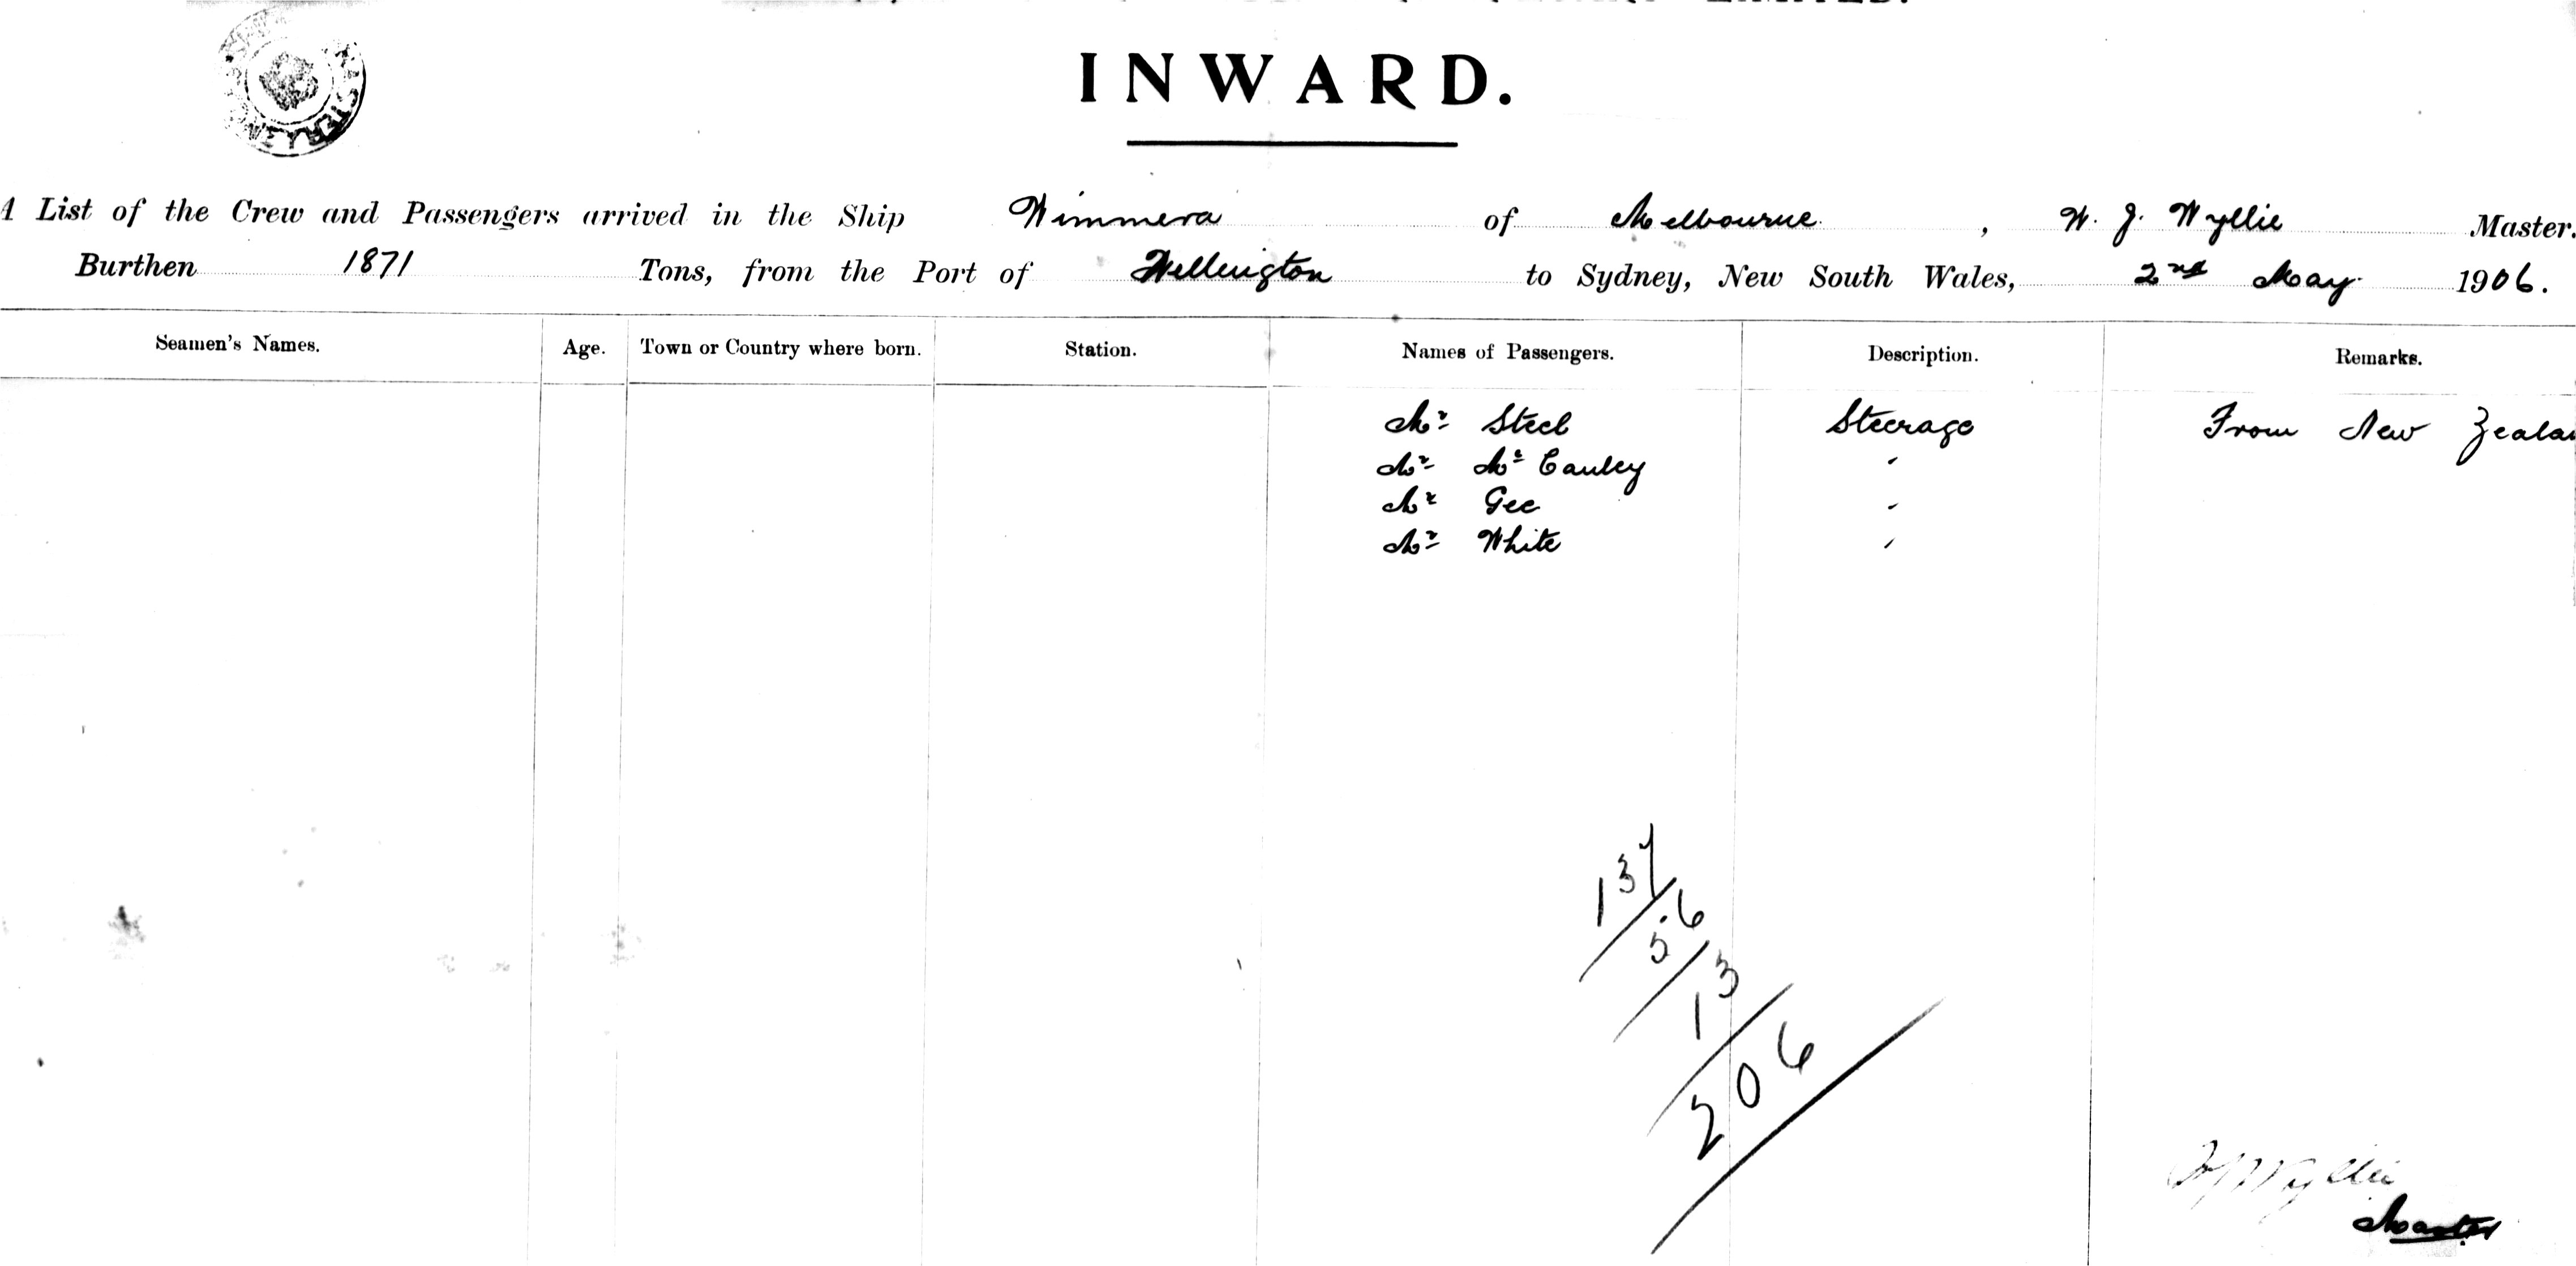 LIMITED.
INWARD.
A List of the Crew and Passengers arrived in the Ship Wimmera of Melbourne, W. J. Wyllie Master.
Burthen 1871 Tons, from the Port of Wellington to Sydney, New South Wales, 2nd May 1906.
Seamen's Names. Age. Town or Country where born. Station. Names of Passengers. Description. Remarks.
Mr Steel Steerage From New Zeala
Mr McCauley "
Mr Gee "
Mr White "
137
56
13
206
Wyllie
Master